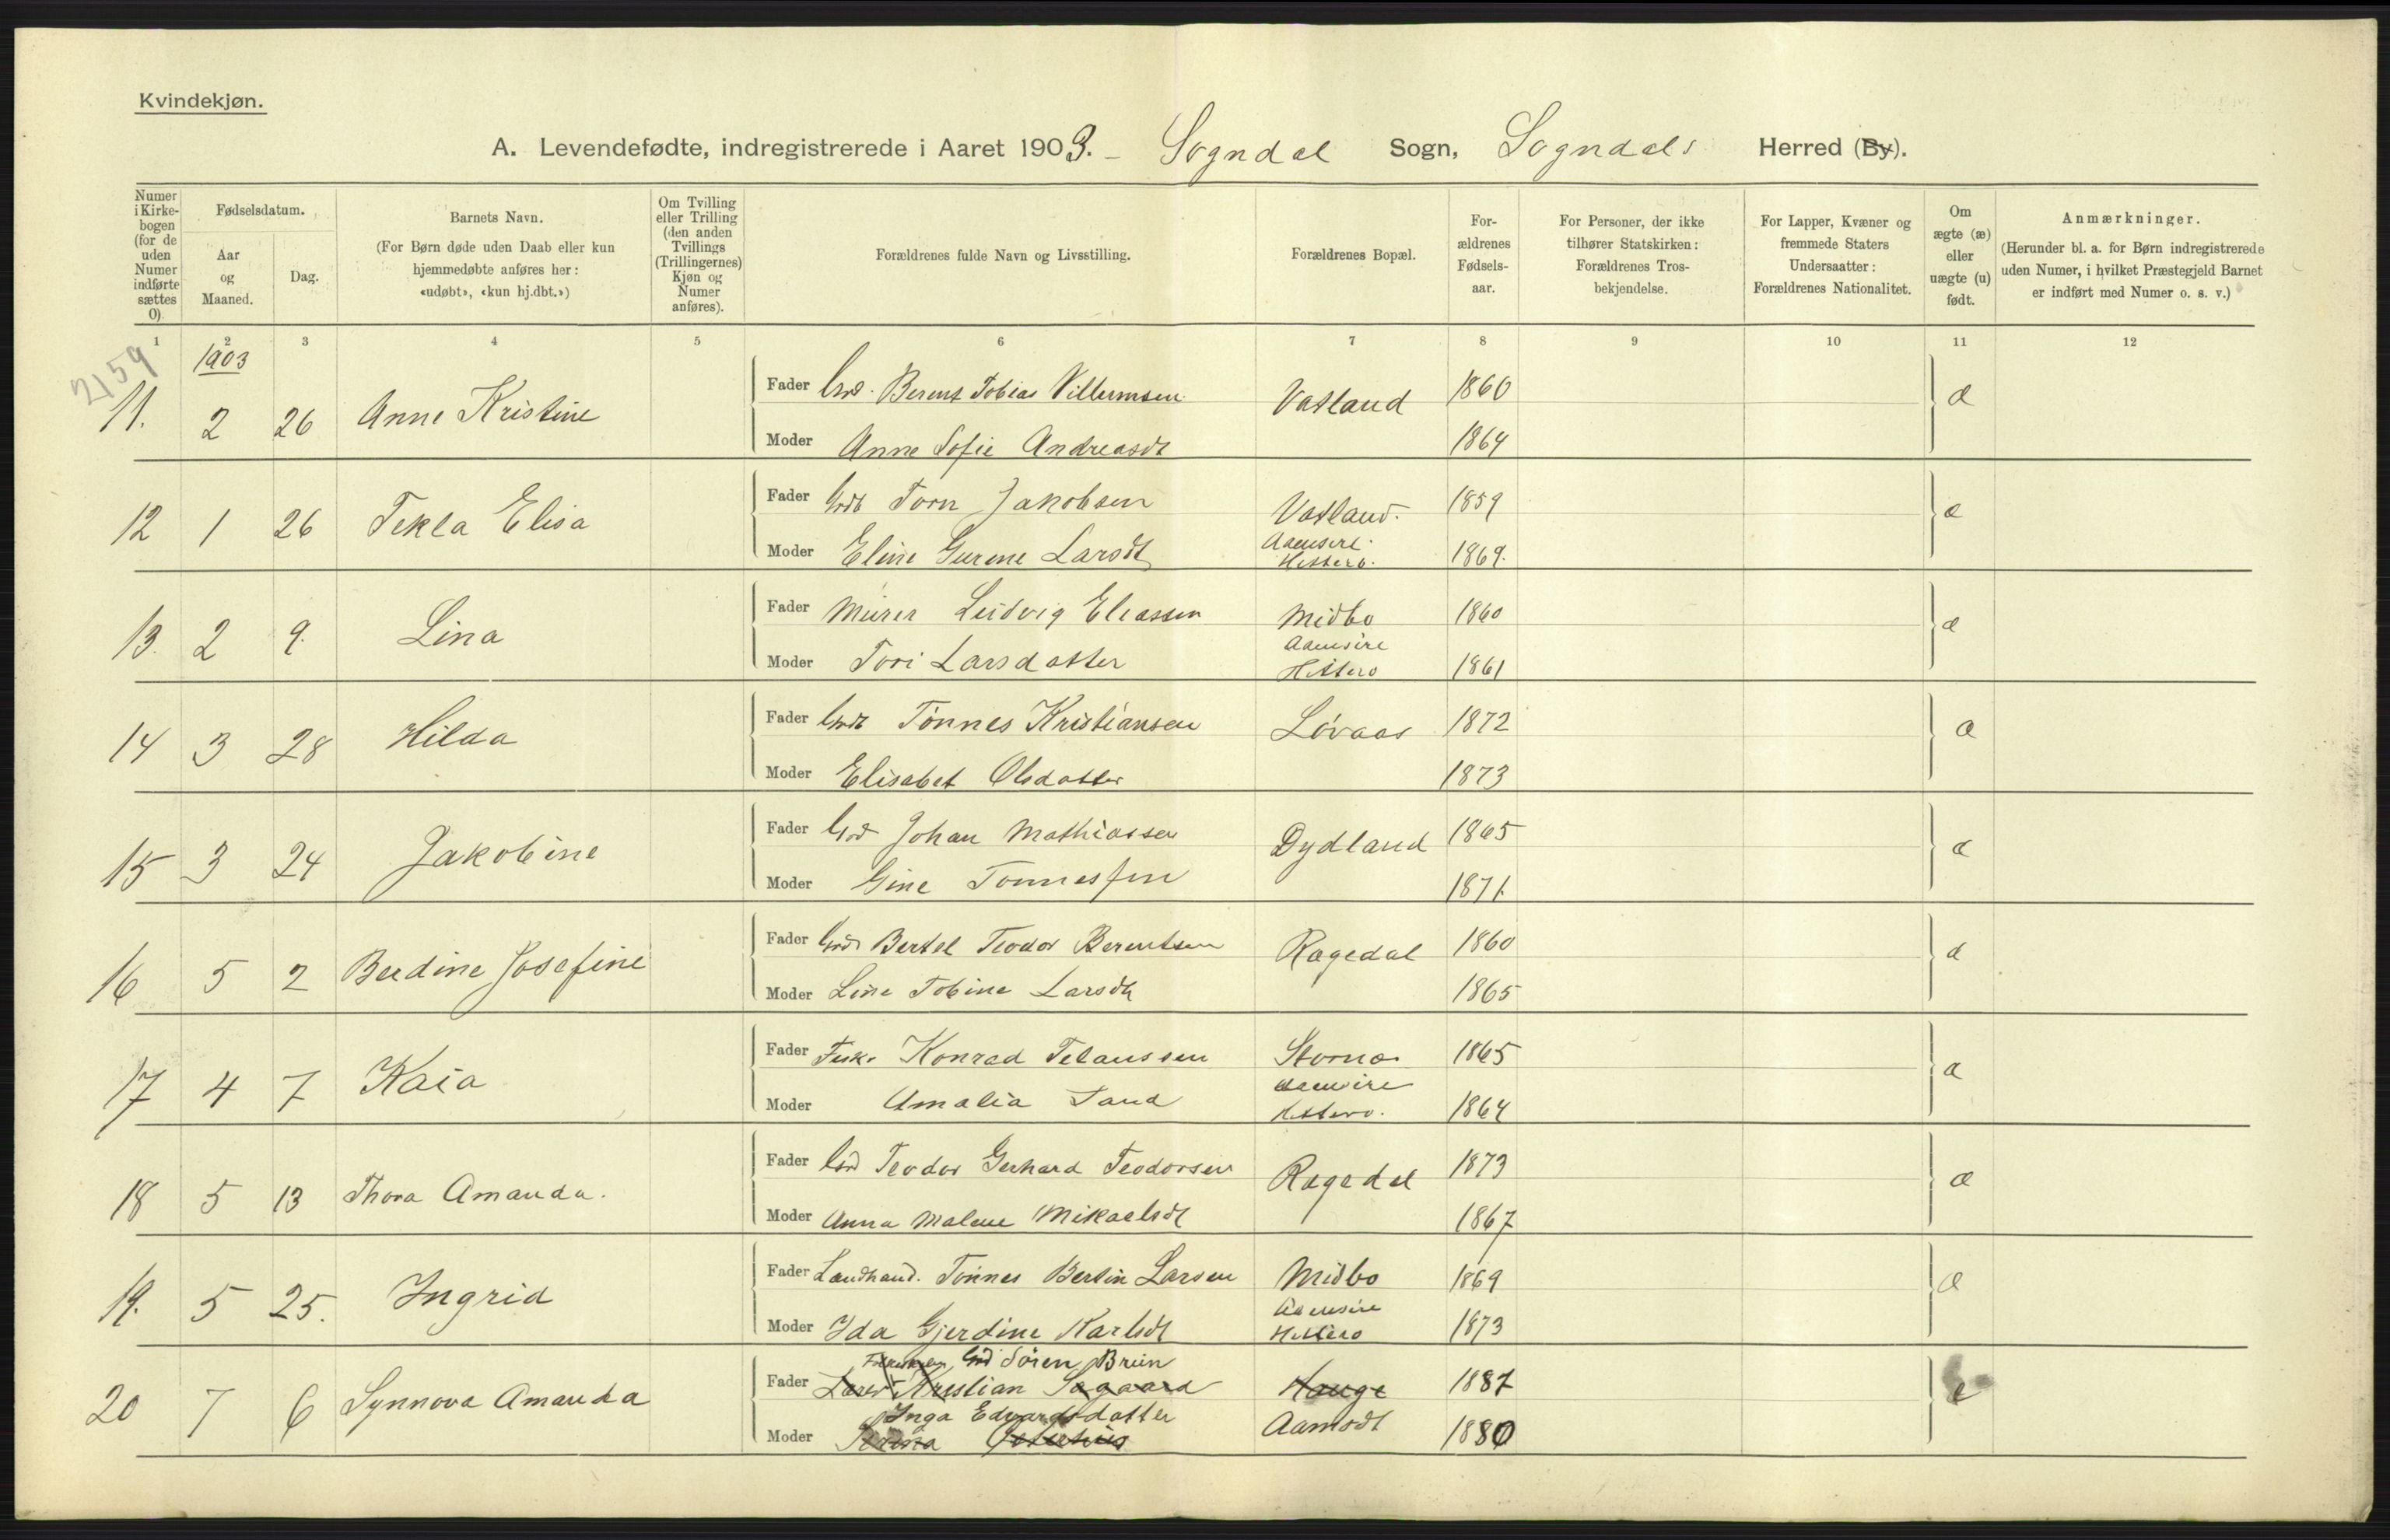 Kvindekjøn.
A. Levendefødte, indregistrerede i Aaret 1903. - Sogndal Sogn, Sogndals Herred (By).
Numer i Kirke-bogen (for de uden Numer indførte sættes 0).
Fødselsdatum.
Aar og Maaned.
Dag.
Barnets Navn.
(For Børn døde uden Daab eller kun hjemmedøbte anføres her: «udøbt», «kun hj.dbt.»)
Om Tvilling eller Trilling (den anden Tvillings (Trillingernes) Kjøn og Numer anføres).
Forældrenes fulde Navn og Livsstilling.
Forældrenes Bopæl.
For-ældrenes Fødsels-aar.
For Personer, der ikke tilhører Statskirken: Forældrenes Tros-bekjendelse.
For Lapper, Kvæner og fremmede Staters Undersaatter: Forældrenes Nationalitet.
Om ægte (æ) eller uægte (u) født.
Anmærkninger.
(Herunder bl. a. for Børn indregistrerede uden Numer, i hvilket Præstegjeld Barnet er indført med Numer o. s. v.)
1 2 3 4 5 6 7 8 9 10 11 12
2159
1903
11. 2 26 Anne Kristine Fader Grd. Berent Tobias Villumsen Vatland 1860 æ
Moder Anne Sofie Andreasdt 1864
12 1 26 Tekla Elisa Fader Grdb Torn Jakobsen Vatland. 1859 æ
Moder Eline Gurine Larsdt Aamsire. Hitterø. 1869.
13. 2 9. Lina Fader Murer Ludvig Eliassen Midbø 1860 æ
Moder Tori Larsdatter Aamsire Hitterø 1861
14 3 28 Hilda Fader Grdb Tønnes Kristiansen Løvaas 1872 æ
Moder Elisabet Olsdatter 1873
15 3 24 Jakobine Fader Grd Johan Mathiassen Dydland 1865 æ
Moder Gine Tonnessen 1871.
16 5 2 Berdine Josefine Fader Grdb Bertel Teodor Berentsen Rægedal 1860 æ
Moder Line Tobine Larsdt 1865
17 4 7 Kaia Fader Fisk. Konrad Telaussen 1865 æ
Moder Amalia Tand Aamsire Hitterø. 1864
18 5 13 Thora Amanda. Fader Grd Teodor Gerhard Teodorsen Rægedal 1873 æ
Moder Anna Malene Mikaelsdt 1867
19. 5 25. Ingrid Fader Landhand. Tønnes Bertin Larsen Midbø 1869 æ
Moder Ida Gjerdine Karlsdt Aamsire Hitterø 1873
Grd Søren Bruin
20 7 6 Synnova Amanda Fader Lærer Kristian Søgaard Hauge 1887
Inga Edvardsdatter
Moder Aamodt 1880